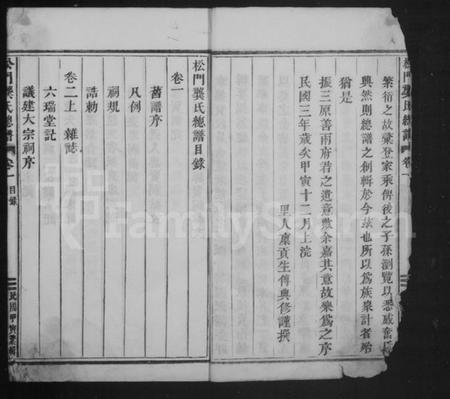 松門龔氏總譜 卷一
繁衍之故彙登家乘俾後之子孫瀏覽以悉咸奮
興然則總譜之創輯於今茲也所以為族衆計者殆
猶是
振三原善兩府君之遺意歟余嘉其意故樂為之序
民國三年歲次甲寅十二月上浣
里人廩貢生傅典修謹撰
松門龔氏總譜目錄
卷一
舊譜序
凡例
祠規
誥勅
卷二上 雜誌
六瑞堂記
議建大宗祠序
松門龔氏總譜 卷一 目錄
民國甲寅
FamilySearch